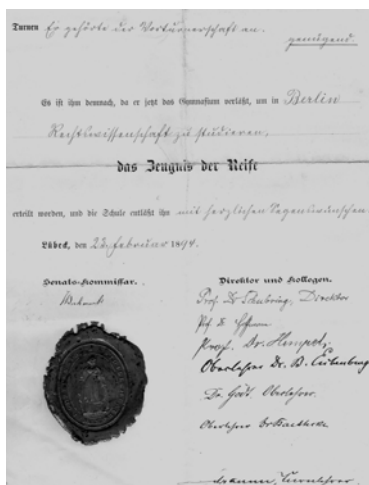 Turnen Er gehörte der Vorturnerschaft an.
genügend.
Es ist ihm demnach, da er jetzt das Gymnasium verläßt, um in Berlin
Rechtswissenschaft zu studieren,
das Zeugnis der Reife
erteilt worden, und die Schule entläßt ihn mit herzlichen Segenswünschen.
Lübeck, den 22. Februar 1894.
Senats-Kommissar.
Direktor und Kollegen.
Prof. Dr. Schubring, Direktor
Prof. Dr. Hoffmann
Prof. Dr. Hempel,
Oberlehrer Dr. B. Eulenburg
Oberlehrer
Oberlehrer Dr
Turnlehrer